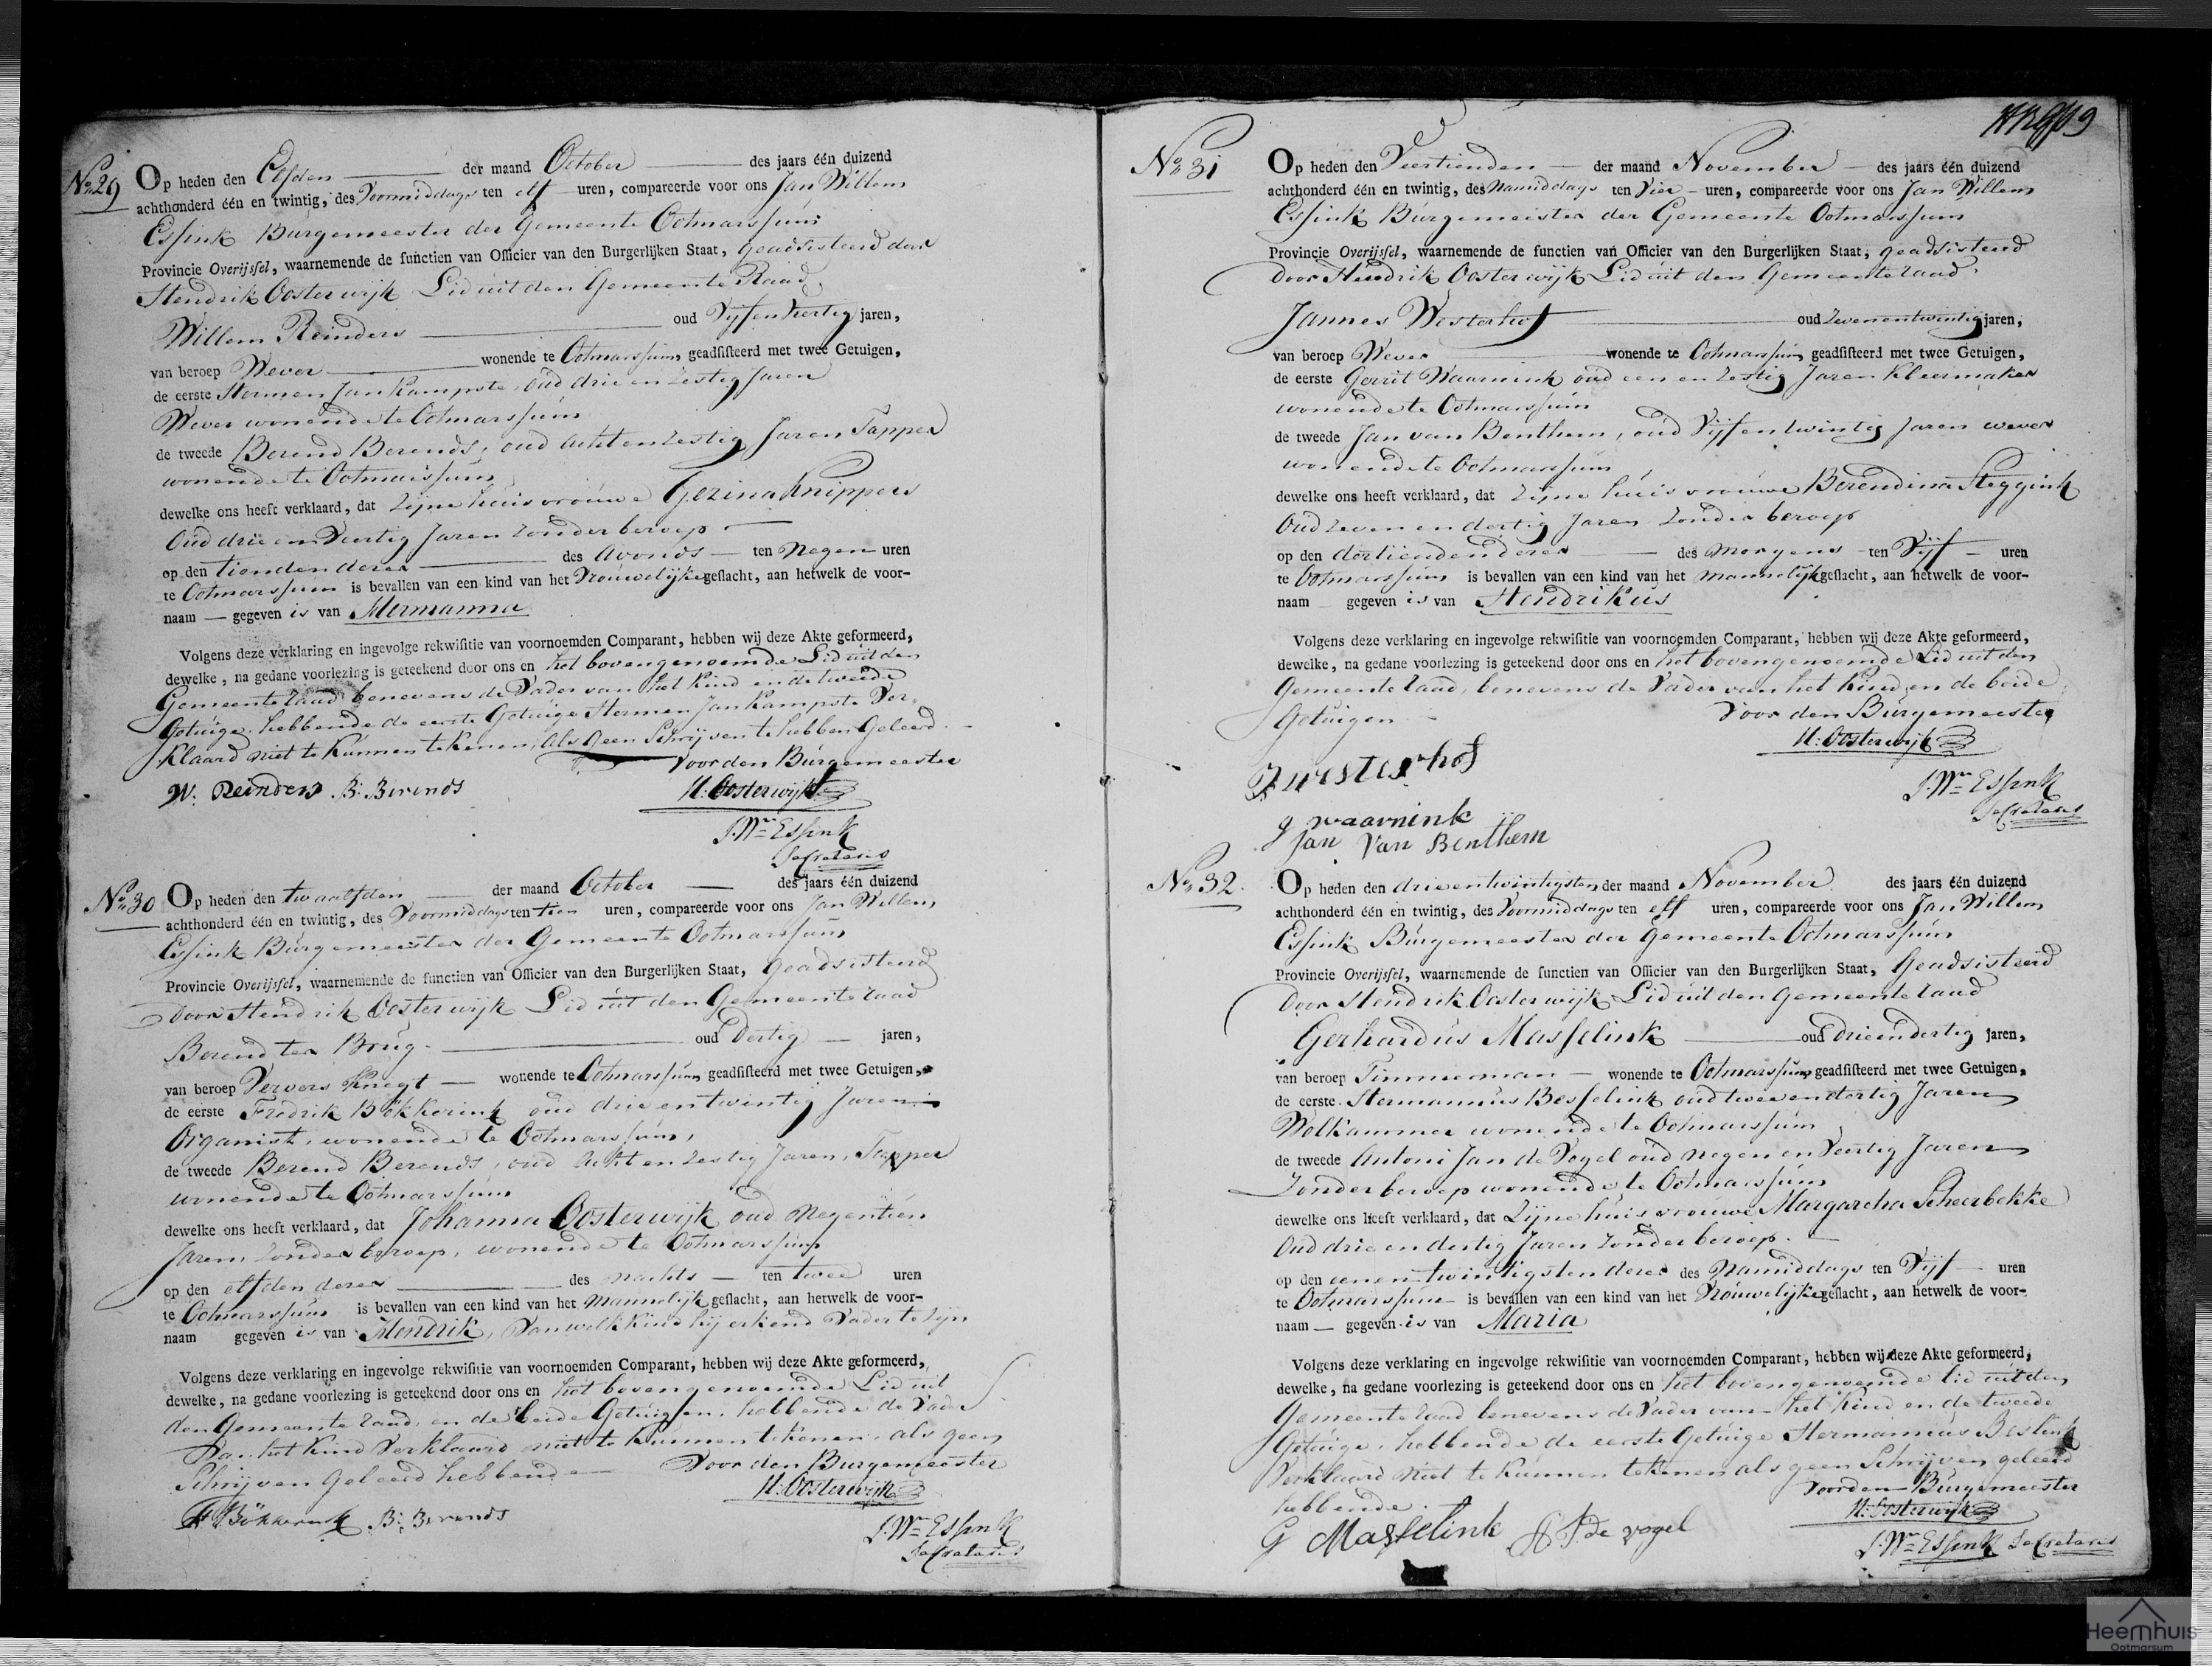 No. 29
Op heden den Elfden der maand October des jaars één duizend
achthonderd één en twintig, des Voormiddags ten elf uren, compareerde voor ons Jan Willem
Essink Burgemeester der Gemeente Ootmarssum
Provincie Overijssel, waarnemende de functien van Officier van den Burgerlijken Staat, geadsisteerd door
Hendrik Oosterwijk Lid uit den Gemeente Raad
Willem Reinders oud Vijfenveertig jaren,
van beroep Wever wonende te Ootmarssum, geadsisteerd met twee Getuigen,
de eerste Hermen Jan Kampste, oud drie en Zestig Jaren
Wever wonende te Ootmarssum
de tweede Berend Berends, oud acht en Zestig Jaren Tapper
wonende te Ootmarssum
dewelke ons heeft verklaard, dat Zijne huisvrouwe Gezina Knippers
Oud drie en Veertig Jaren Zonder beroep
op den tienden dezer des Avonds ten Negen uren
te Ootmarssum is bevallen van een kind van het Vrouwelijke geslacht, aan hetwelk de voor-
naam gegeven is van Hermanna
Volgens deze verklaring en ingevolge rekwisitie van voornoemden Comparant, hebben wij deze Akte geformeerd,
dewelke, na gedane voorlezing is geteekend door ons en het bovengenoemde Lid uit den
Gemeente raad benevens de Vader van het Kind en de tweede
Getuige, hebbende de eerste Getuige Hermen Jan Kampste Ver-
klaard niet te Kunnen tekenen, als geen Schrijven te hebben Geleerd
Voor den Burgemeester
W: Reinders B: Berends H: Oosterwijk
J: Wm Essink
Secretaris
No. 30
Op heden den twaalfden der maand October des jaars één duizend
achthonderd één en twintig, des Voormiddags ten tien uren, compareerde voor ons Jan Willem
Essink Burgemeester der Gemeente Ootmarssum
Provincie Overijssel, waarnemende de functien van Officier van den Burgerlijken Staat, geadsisteerd
door Hendrik Oosterwijk Lid uit den Gemeente raad
Berend ter Brug oud Dertig jaren,
van beroep Ververs Knegt wonende te Ootmarssum, geadsisteerd met twee Getuigen,
de eerste Fredrik Bökkerink oud drie en twintig Jaren
Organist, wonende te Ootmarssum,
de tweede Berend Berends, oud Acht en Zestig Jaren, Tapper
wonende te Ootmarssum
dewelke ons heeft verklaard, dat Johanna Oosterwijk oud Negentien
Jaren Zonder beroep, wonende te Ootmarssum
op den elfden dezer des nachts ten twee uren
te Ootmarssum is bevallen van een kind van het Mannelijk geslacht, aan hetwelk de voor-
naam gegeven is van Hendrik, Van welk Kind hij erkend Vader te Zijn
Volgens deze verklaring en ingevolge rekwisitie van voornoemden Comparant, hebben wij deze Akte geformeerd,
dewelke, na gedane voorlezing is geteekend door ons en het bovengenoemde Lid uit
den Gemeente raad en de beide Getuigen, hebbende de Vader
Van het Kind Verklaard niet te Kunnen tekenen, als geen
Schrijven Geleerd hebbende Voor den Burgemeester
H: Oosterwijk
F Bökkerink B: Berends
J: Wm Essink
Secretaris
No. 31
Op heden den Veertienden der maand November des jaars één duizend
achthonderd één en twintig, des Namiddags ten Vier uren, compareerde voor ons Jan Willem
Essink Burgemeester der Gemeente Ootmarssum
Provincie Overijssel, waarnemende de functien van Officier van den Burgerlijken Staat, geadsisteerd
door Hendrik Oosterwijk Lid uit den Gemeente raad
Jannes Westerhof oud Zevenentwintig jaren,
van beroep Wever wonende te Ootmarssum geadsisteerd met twee Getuigen,
de eerste Gerrit Waarnink oud een en Zestig Jaren Kleermaker
wonende te Ootmarssum
de tweede Jan van Benthem, oud Vijfentwintig Jaren wever
wonende te Ootmarssum
dewelke ons heeft verklaard, dat Zijne huisvrouwe Berendina Steggink
Oud Zeven en dertig Jaren Zonder beroep
op den dertienden dezer des Morgens ten Vijf uren
te Ootmarssum is bevallen van een kind van het mannelijk geslacht, aan hetwelk de voor-
naam gegeven is van Hendrikus
Volgens deze verklaring en ingevolge rekwisitie van voornoemden Comparant, hebben wij deze Akte geformeerd,
dewelke, na gedane voorlezing is geteekend door ons en het bovengenoemde Lid uit den
Gemeente raad, benevens de Vader van het Kind en de beide
Getuigen Voor den Burgemeester
H: Oosterwijk
J westerhof
J: Wm Essink
Secretaris
g waarnink
Jan Van Benthem
No. 32
Op heden den drieentwintigsten der maand November des jaars één duizend
achthonderd één en twintig, des Voormiddags ten elf uren, compareerde voor ons Jan Willem
Essink Burgemeester der Gemeente Ootmarssum
Provincie Overijssel, waarnemende de functien van Officier van den Burgerlijken Staat, Geadsisteerd
door Hendrik Oosterwijk Lid uit den Gemeente raad
Gerhardus Masselink oud drieendertig jaren,
van beroep Timmerman wonende te Ootmarssum geadsisteerd met twee Getuigen,
de eerste Hermannus Besselink oud twee en dertig Jaren
Wolkammer wonende te Ootmarssum
de tweede Antoni Jan de Vogel oud Negen en Veertig Jaren
Zonder beroep wonende te Ootmarssum
dewelke ons heeft verklaard, dat Zijne huisvrouwe Margaretha Scheerbekke
Oud drie en dertig Jaren Zonder beroep
op den eenentwintigsten dezer des Namiddags ten Vijf uren
te Ootmarssum is bevallen van een kind van het Vrouwelijke geslacht, aan hetwelk de voor-
naam gegeven is van Maria
Volgens deze verklaring en ingevolge rekwisitie van voornoemden Comparant, hebben wij deze Akte geformeerd,
dewelke, na gedane voorlezing is geteekend door ons en het bovengenoemde lid uit den
Gemeente raad benevens de Vader van het Kind en de tweede
Getuige, hebbende de eerste Getuige Hermannus Beslink
Verklaard niet te Kunnen tekenen als geen Schrijven geleerd
hebbende Voor den Burgemeester
H: Oosterwijk
G Masselink A J: de vogel
J: Wm Essink Secretaris
Heemhuis
Ootmarsum